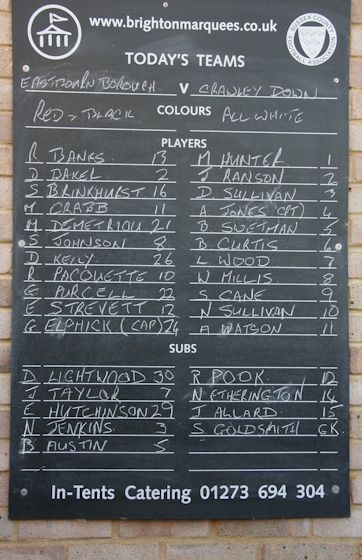 www.brightonmarquees.co.uk
SUSSEX COUNTY FOOTBALL ASSOCIATION
TODAY'S TEAMS
EASTBOURN BOROUGH V CRAWLEY DOWN
RED & BLACK COLOURS ALL WHITE
PLAYERS
R BANKS 13 M HUNTER 1
D BAKER 2 J RANSON 2
S BRINKHURST 16 D SULLIVAN 3
M CRABB 11 A JONES (PT) 4
M DEMETRIOU 21 B SWETMAN 5
S JOHNSON 8 B CURTIS 6
D KELLY 26 L WOOD 7
R PACQUETTE 10 W MILLIS 8
G PURCELL 22 S CANE 9
E STREVETT 12 N SULLIVAN 10
G ELPHICK (CAP) 24 A WATSON 11
SUBS
D LIGHTWOOD 30 R POOK 12
J TAYLOR 7 N ETHERINGTON 14
E HUTCHINSON 29 J ALLARD 15
N JENKINS 3 S GOLDSMITH GK
B AUSTIN 5
In-Tents Catering 01273 694 304